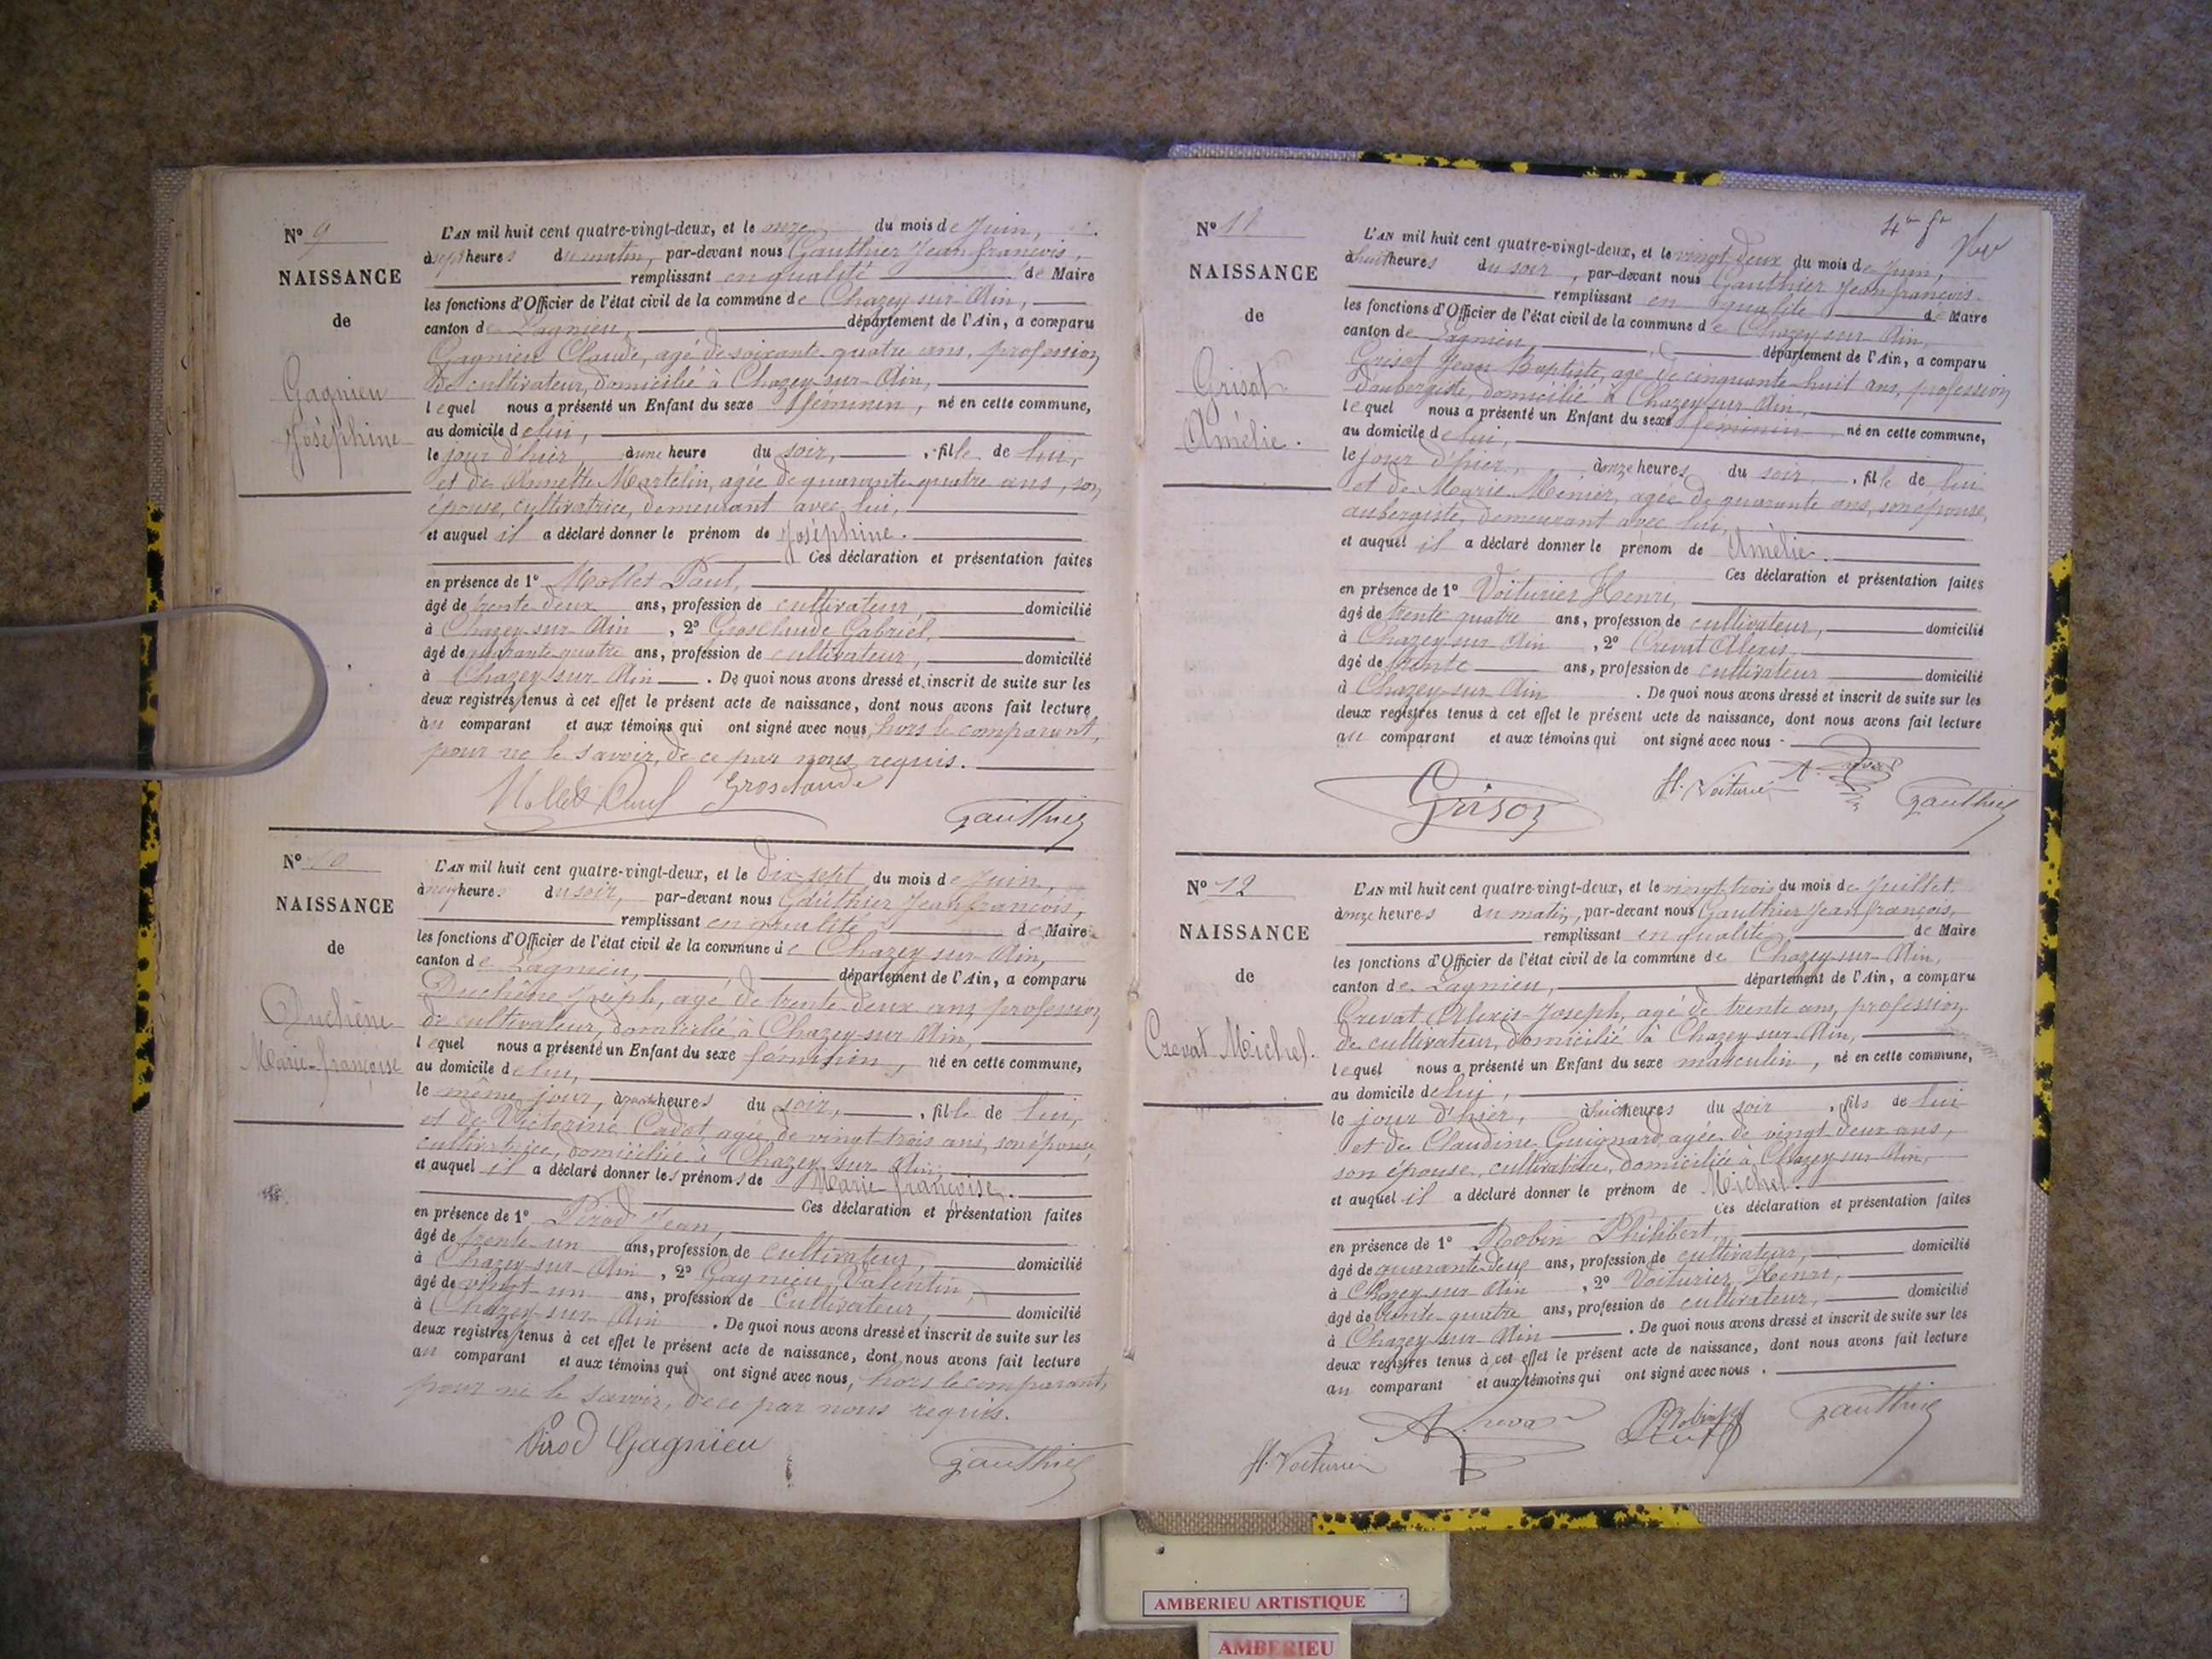 N° 9
NAISSANCE
de
Gagnieu
Joséphine
L'AN mil huit cent quatre-vingt-deux, et le onze du mois de Juin,
à sept heures du matin, par-devant nous Gauthier Jean françois,
remplissant en qualité de Maire
les fonctions d'Officier de l'état civil de la commune de Chazey sur Ain,
canton de Lagnieu, département de l'Ain, a comparu
Gagnieu Claude, agé de soixante quatre ans, profession
de cultivateur, domicilié à Chazey-sur-Ain,
lequel nous a présenté un Enfant du sexe féminin, né en cette commune,
au domicile de lui,
le jour d'hier, à une heure du soir, fille de lui,
et de Annette Martelin, agée de quarante quatre ans, son
épouse, cultivatrice, demeurant avec lui,
et auquel il a déclaré donner le prénom de Joséphine.
Ces déclaration et présentation faites
en présence de 1° Mollet Paul,
âgé de trente deux ans, profession de cultivateur, domicilié
à Chazey-sur-Ain, 2° Grosclaude Gabriel,
âgé de quarante quatre ans, profession de cultivateur, domicilié
à Chazey sur Ain. De quoi nous avons dressé et inscrit de suite sur les
deux registres tenus à cet effet le présent acte de naissance, dont nous avons fait lecture
au comparant et aux témoins qui ont signé avec nous, hors le comparant,
pour ne le savoir, de ce par nous requis.
Mollet Paul Grosclaude
Gauthier
N° 10
NAISSANCE
de
Duchêne
Marie-françoise
L'AN mil huit cent quatre-vingt-deux, et le dix-sept du mois de Juin,
à neuf heures du soir, par-devant nous Gauthier Jean françois,
remplissant en qualité de Maire
les fonctions d'Officier de l'état civil de la commune de Chazey sur Ain,
canton de Lagnieu, département de l'Ain, a comparu
Duchêne Joseph, agé de trente deux ans, profession
de cultivateur, domicilié à Chazey-sur Ain,
lequel nous a présenté un Enfant du sexe féminin, né en cette commune,
au domicile de lui,
le même jour, à quatre heures du soir, fille de lui,
et de Victorine Cadot, agée de vingt-trois ans, son épouse,
cultivatrice, domiciliée à Chazey sur Ain,
et auquel il a déclaré donner les prénoms de Marie françoise.
Ces déclaration et présentation faites
en présence de 1° Pirod Jean,
âgé de trente-un ans, profession de cultivateur, domicilié
à Chazey-sur-Ain, 2° Gagnieu Valentin,
âgé de vingt-un ans, profession de Cultivateur, domicilié
à Chazey-sur Ain. De quoi nous avons dressé et inscrit de suite sur les
deux registres tenus à cet effet le présent acte de naissance, dont nous avons fait lecture
au comparant et aux témoins qui ont signé avec nous, hors le comparant,
pour ne le savoir, de ce par nous requis.
Pirod Gagnieu
Gauthier
4e ft
N° 11
NAISSANCE
de
Grisot
Amélie.
L'AN mil huit cent quatre-vingt-deux, et le vingt deux du mois de Juin,
à huit heures du soir, par-devant nous Gauthier Jean françois
remplissant en qualité de Maire
les fonctions d'Officier de l'état civil de la commune de Chazey sur Ain,
canton de Lagnieu, département de l'Ain, a comparu
Grisot Jean Baptiste, agé de cinquante-huit ans, profession
d'aubergiste, domicilié à Chazey sur Ain,
lequel nous a présenté un Enfant du sexe féminin né en cette commune,
au domicile de lui,
le jour d'hier, à onze heures du soir, fille de lui
et de Marie Ménier, agée de quarante ans, son épouse,
aubergiste, demeurant avec lui,
et auquel il a déclaré donner le prénom de Amélie.
Ces déclaration et présentation faites
en présence de 1° Voiturier Henri,
âgé de trente quatre ans, profession de cultivateur, domicilié
à Chazey-sur Ain, 2° Crevat Alexis,
âgé de trente ans, profession de cultivateur domicilié
à Chazey-sur-Ain. De quoi nous avons dressé et inscrit de suite sur les
deux registres tenus à cet effet le présent acte de naissance, dont nous avons fait lecture
au comparant et aux témoins qui ont signé avec nous.
Grisot
H. Voiturier
A. Crevat
Gauthier
N° 12
NAISSANCE
de
Crevat Michel.
L'AN mil huit cent quatre-vingt-deux, et le vingt-trois du mois de Juillet
à onze heures du matin, par-devant nous Gauthier Jean françois,
remplissant en qualité de Maire
les fonctions d'Officier de l'état civil de la commune de Chazey-sur-Ain,
canton de Lagnieu, département de l'Ain, a comparu
Crevat Alexis-Joseph, agé de trente ans, profession
de cultivateur, domicilié à Chazey-sur-Ain,
lequel nous a présenté un Enfant du sexe masculin, né en cette commune,
au domicile de lui,
le jour d'hier, à huit heures du soir, fils de lui
et de Claudine Guignard, agée de vingt-deux ans,
son épouse, cultivatrice, domiciliée à Chazey-sur-Ain,
et auquel il a déclaré donner le prénom de Michel.
Ces déclaration et présentation faites
en présence de 1° Robin Philibert,
âgé de quarante-deux ans, profession de cultivateur, domicilié
à Chazey sur Ain, 2° Voiturier Henri,
âgé de trente-quatre ans, profession de cultivateur, domicilié
à Chazey sur Ain. De quoi nous avons dressé et inscrit de suite sur les
deux registres tenus à cet effet le présent acte de naissance, dont nous avons fait lecture
au comparant et aux témoins qui ont signé avec nous.
H. Voiturier
A. Crevat
Robin
Gauthier
AMBERIEU ARTISTIQUE
AMBERIEU